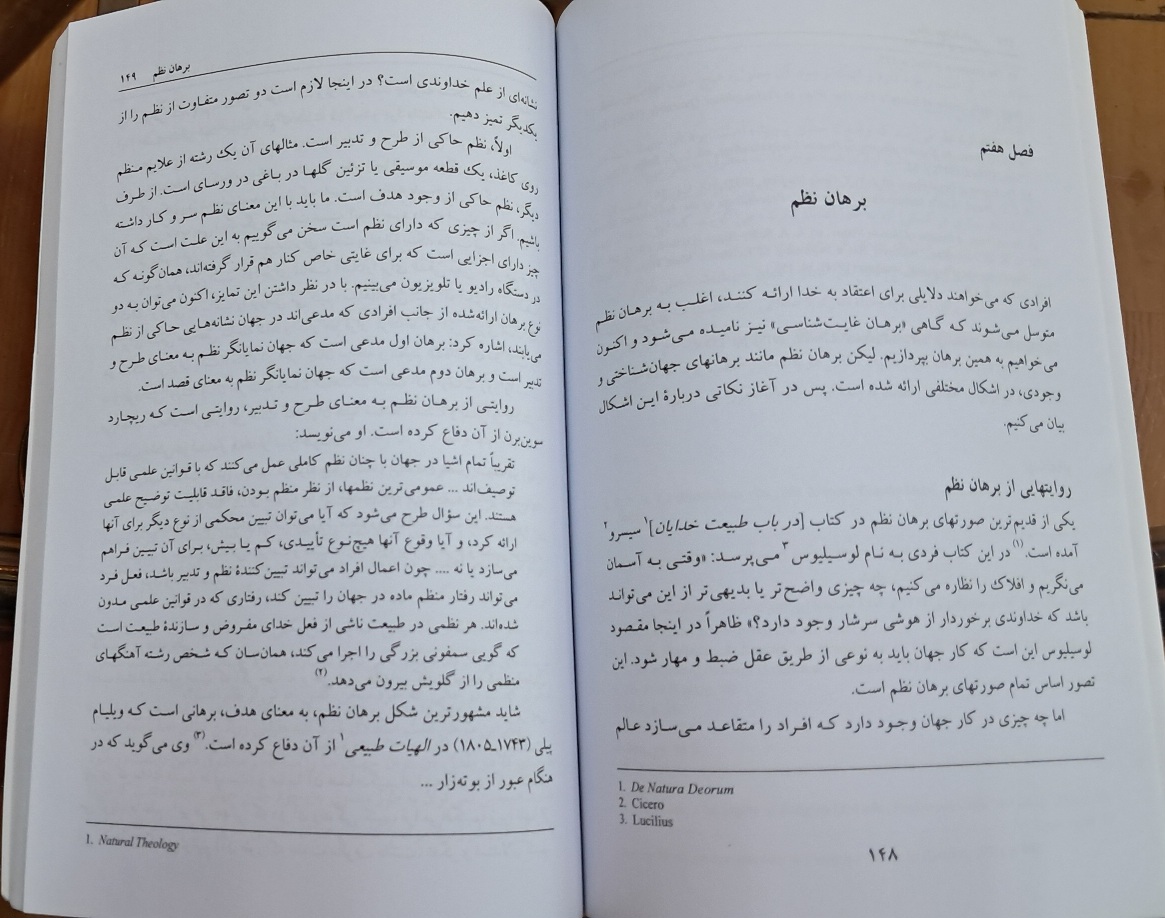 فصل هفتم
برهان نظم
افرادی که می‌خواهند دلایلی برای اعتقاد به خدا ارائه کنند، اغلب به برهان نظم
متوسل می‌شوند که گاهی «برهان غایت‌شناسی» نیز نامیده می‌شود و اکنون
می‌خواهیم به همین برهان بپردازیم. لیکن برهان نظم مانند برهانهای جهان‌شناختی و
وجودی، در اشکال مختلفی ارائه شده است. پس در آغاز نکاتی دربارهٔ این اشکال
بیان می‌کنیم.
روایتهایی از برهان نظم
یکی از قدیم‌ترین صورتهای برهان نظم در کتاب [در باب طبیعت خدایان]۱ سیسرو۲
آمده است.(۱) در این کتاب فردی به نام لوسیلیوس۳ می‌پرسد: «وقتی به آسمان
می‌نگریم و افلاک را نظاره می‌کنیم، چه چیزی واضح‌تر یا بدیهی‌تر از این می‌تواند
باشد که خداوندی برخوردار از هوشی سرشار وجود دارد؟» ظاهراً در اینجا مقصود
لوسیلیوس این است که کار جهان باید به نوعی از طریق عقل ضبط و مهار شود. این
تصور اساس تمام صورتهای برهان نظم است.
اما چه چیزی در کار جهان وجود دارد که افراد را متقاعد می‌سازد عالم
1. De Natura Deorum
2. Cicero
3. Lucilius
۱۴۸
برهان نظم ۱۴۹
نشانه‌ای از علم خداوندی است؟ در اینجا لازم است دو تصور متفاوت از نظم را از
یکدیگر تمیز دهیم.
اولاً، نظم حاکی از طرح و تدبیر است. مثالهای آن یک رشته از علایم منظم
روی کاغذ، یک قطعه موسیقی یا تزئین گلها در باغی در ورسای است. از طرف
دیگر، نظم حاکی از وجود هدف است. ما باید با این معنای نظم سر و کار داشته
باشیم. اگر از چیزی که دارای نظم است سخن می‌گوییم به این علت است که آن
چیز دارای اجزایی است که برای غایتی خاص کنار هم قرار گرفته‌اند، همان‌گونه که
در دستگاه رادیو یا تلویزیون می‌بینیم. با در نظر داشتن این تمایز، اکنون می‌توان به دو
نوع برهان ارائه‌شده از جانب افرادی که مدعی‌اند در جهان نشانه‌هایی حاکی از نظم
می‌یابند، اشاره کرد: برهان اول مدعی است که جهان نمایانگر نظم به معنای طرح و
تدبیر است و برهان دوم مدعی است که جهان نمایانگر نظم به معنای قصد است.
روایتی از برهان نظم به معنای طرح و تدبیر، روایتی است که ریچارد
سوین‌برن از آن دفاع کرده است. او می‌نویسد:
تقریباً تمام اشیا در جهان با چنان نظم کاملی عمل می‌کنند که با قوانین علمی قابل
توصیف‌اند ... عمومی‌ترین نظمها، از نظر منظم بودن، فاقد قابلیت توضیح علمی
هستند. این سؤال طرح می‌شود که آیا می‌توان تبیین محکمی از نوع دیگر برای آنها
ارائه کرد، و آیا وقوع آنها هیچ‌نوع تأییدی، کم یا بیش، برای آن تبیین فراهم
می‌سازد یا نه .... چون اعمال افراد می‌تواند تبیین‌کنندهٔ نظم و تدبیر باشد، فعل فرد
می‌تواند رفتار منظم ماده در جهان را تبیین کند، رفتاری که در قوانین علمی مدون
شده‌اند. هر نظمی در طبیعت ناشی از فعل خدای مفروض و سازندهٔ طبیعت است
که گویی سمفونی بزرگی را اجرا می‌کند، همان‌سان که شخص رشته آهنگهای
منظمی را از گلویش بیرون می‌دهد.(۲)
شاید مشهورترین شکل برهان نظم، به معنای هدف، برهانی است که ویلیام
پیلی (۱۷۴۳ـ۱۸۰۵) در الهیات طبیعی۱ از آن دفاع کرده است.(۳) وی می‌گوید که در
هنگام عبور از بوته‌زار ...
1. Natural Theology